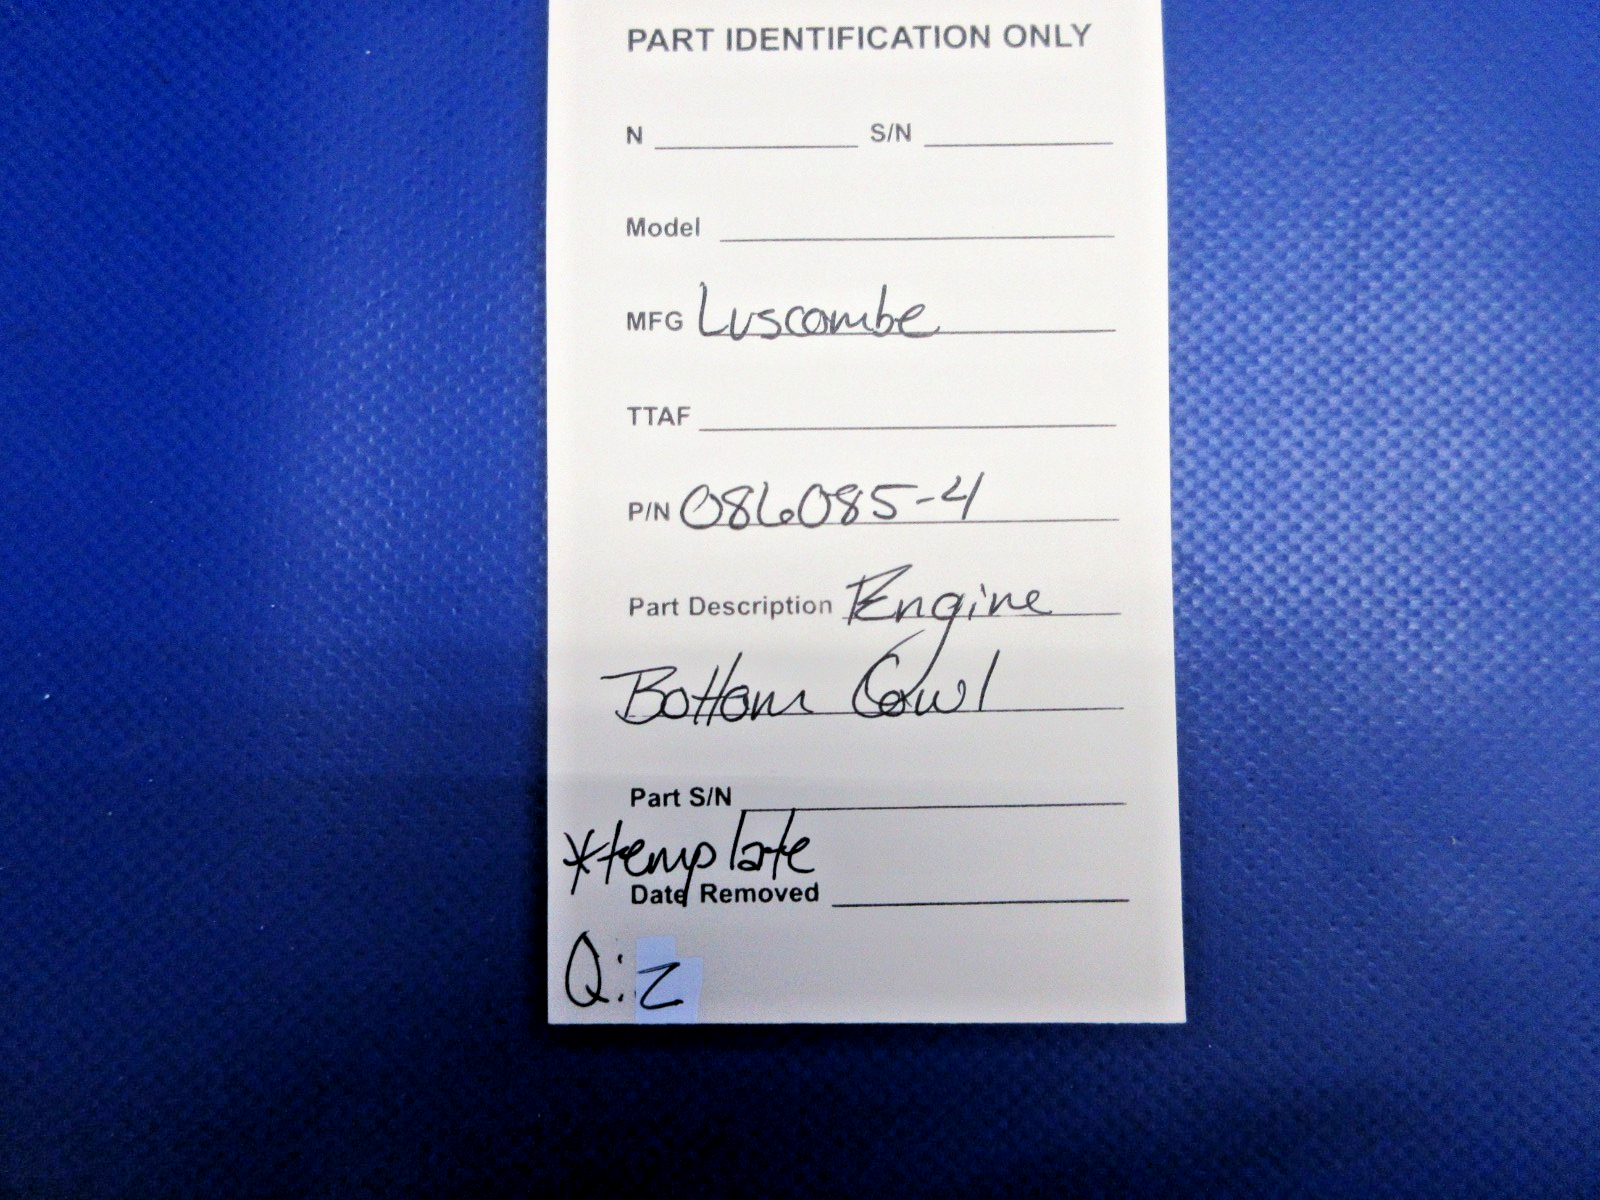 PART IDENTIFICATION ONLY
N S/N
Model
MFG Luscombe
TTAF
P/N 086085-4
Part Description Engine
Bottom Cowl
Part S/N
*template
Date Removed
Q:2